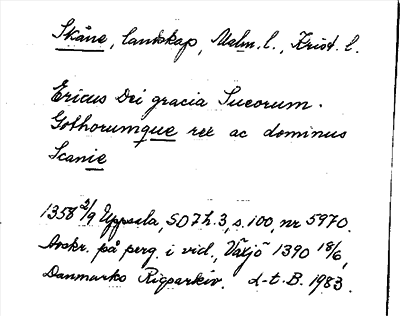 Skåne, landskap, Malm. l., Krist. l.
Ericus Dei gracia Sueorum.
Gothorumque rex ac dominus
Scanie
1358 2/9 Uppsala, SD 7 h. 3, s. 100, nr 5970.
Avskr. på perg. i vid., Växjö 1390 18/6,
Danmarks Rigsarkiv. L-t. B. 1983.